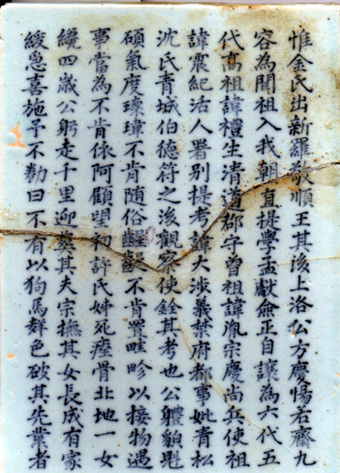 惟金氏出新羅敬順王其後上洛公方慶惕若齋九
容為開祖入我朝直提學孟獻僉正自讓為六代五
代高祖諱禮生清道郡守曾祖諱胤宗慶尚兵使祖
諱震紀活人署別提考諱大涉義禁府都事妣青松
沈氏青城伯德符之後觀察使銓其考也公軆貌魁
碩氣度瓌瑋不肯随俗齷齪不肯置畦畛以接物遇
事當為不肯依阿顧望初許氏姊死瘞骨北地一女
纔四歲公躬走千里迎葬其夫宗撫其女長成有家
緩急喜施予不勸曰不有以狗馬群色破其先業者